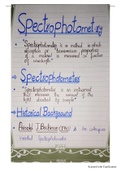 Spectrophotometry
"Spectrophotometry is a method in which
absorption or transmission properties
of a material is measured as function
of wavelength."
Spectrophotometer
"Spectrophotometer is an instrument
that measures the amount of the
light absorbed by a sample."
Historical Background
Arnold J. Beckman
invented Spectrophotometer